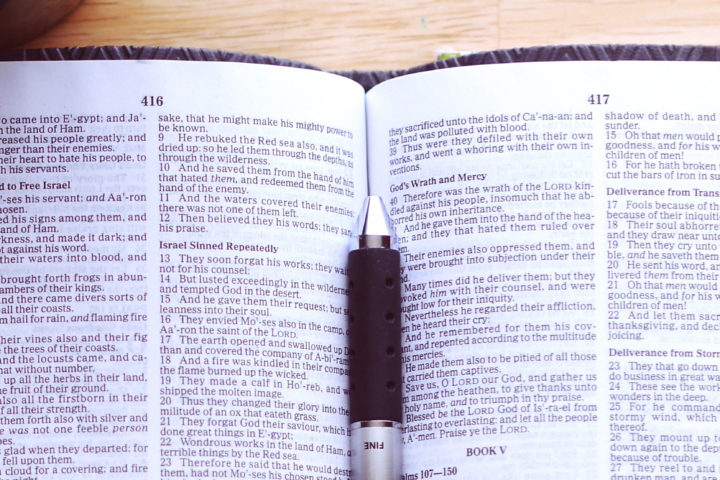 416
o came into E'-gypt; and Ja'-
n the land of Ham.
reased his people greatly; and
nger than their enemies.
heir heart to hate his people, to
h his servants.
d to Free Israel
'-ses his servant; and Aa'-ron
hosen.
ed his signs among them, and
land of Ham.
rkness, and made it dark; and
t against his word.
their waters into blood, and
brought forth frogs in abun-
ambers of their kings.
and there came divers sorts of
all their coasts.
m hail for rain, and flaming fire
heir vines also and their fig
e the trees of their coasts.
nd the locusts came, and ca-
hat without number,
up all the herbs in their land,
e fruit of their ground.
also all the firstborn in their
f all their strength.
them forth also with silver and
e was not one feeble person
bes.
s glad when they departed: for
fell upon them.
a cloud for a covering; and fire
sake, that he might make his mighty power to
be known.
9 He rebuked the Red sea also, and it was
dried up: so he led them through the depths, as
through the wilderness.
10 And he saved them from the hand of him
that hated them, and redeemed them from the
hand of the enemy.
11 And the waters covered their enemies:
there was not one of them left.
12 Then believed they his words; they sang
his praise.
Israel Sinned Repeatedly
13 They soon forgat his works; they wait
not for his counsel:
14 But lusted exceedingly in the wilderne
and tempted God in the desert.
15 And he gave them their request; but se
leanness into their soul.
16 They envied Mo'-ses also in the camp, a
Aa'-ron the saint of the LORD.
17 The earth opened and swallowed up D
than and covered the company of A-bi'-ram
18 And a fire was kindled in their compa
the flame burned up the wicked.
19 They made a calf in Ho'-reb, and w
shipped the molten image.
20 Thus they changed their glory into the
militude of an ox that eateth grass.
21 They forgat God their saviour, which h
done great things in E'-gypt;
22 Wondrous works in the land of Ham, a
terrible things by the Red sea.
23 Therefore he said that he would dest
them, had not Mo'-ses his chosen stood
FINE
417
they sacrificed unto the idols of Ca'-na-an: and
the land was polluted with blood.
39 Thus were they defiled with their own
works, and went a whoring with their own in-
ventions.
God's Wrath and Mercy
40 Therefore was the wrath of the LORD kin-
dled against his people, insomuch that he ab-
horred his own inheritance.
And he gave them into the hand of the hea-
en; and they that hated them ruled over
Their enemies also oppressed them, and
y were brought into subjection under their
nd.
Many times did he deliver them; but they
voked him with their counsel, and were
ught low for their iniquity.
Nevertheless he regarded their affliction,
en he heard their cry:
And he remembered for them his cov-
ant, and repented according to the multitude
his mercies.
He made them also to be pitied of all those
t carried them captives.
Save us, O LORD our God, and gather us
m among the heathen, to give thanks unto
holy name, and to triumph in thy praise.
Blessed be the LORD God of Is'-ra-el from
erlasting to everlasting: and let all the people
, A'-men. Praise ye the LORD.
BOOK V
alms 107—150
shadow of death, and
sunder.
15 Oh that men would p
goodness, and for his w
children of men!
16 For he hath broken
cut the bars of iron in su
Deliverance from Trans
17 Fools because of th
because of their iniquiti
18 Their soul abhorre
and they draw near unto
19 Then they cry unto
ble, and he saveth them
20 He sent his word, an
livered them from their
21 Oh that men would
goodness, and for his w
children of men!
22 And let them sacr
thanksgiving, and decl
joicing.
Deliverance from Storm
23 They that go down
do business in great wa
24 These see the work
wonders in the deep.
25 For he command
stormy wind, which
thereof.
26 They mount up t
down again to the dep
because of trouble.
27 They reel to and
drunken man, and are